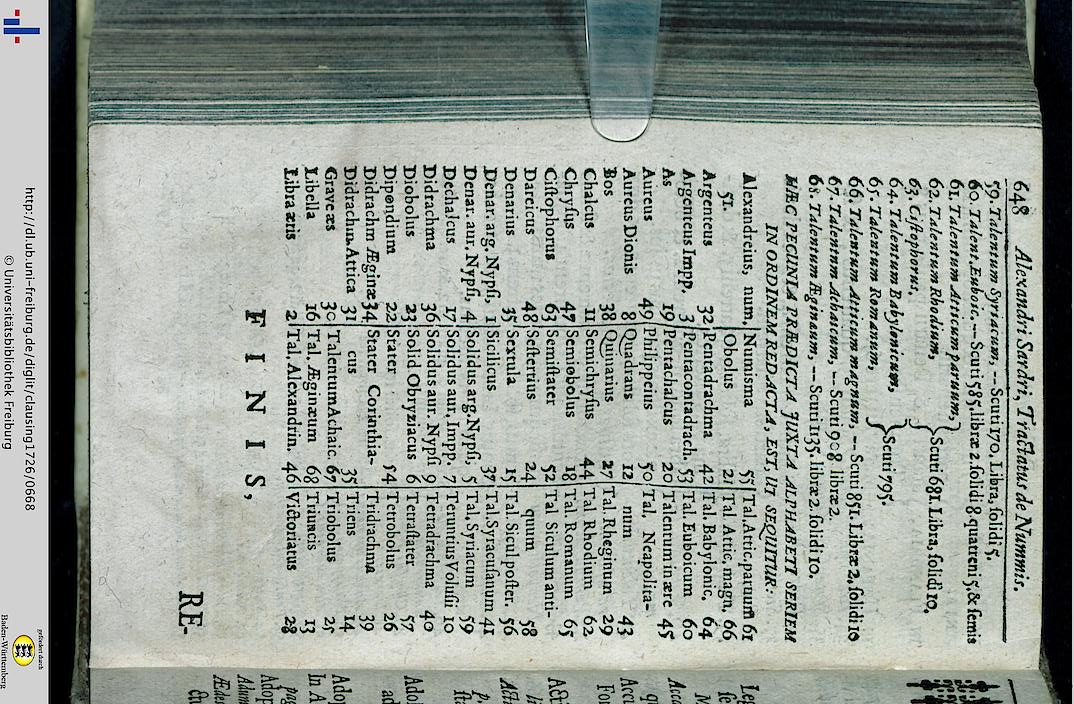 648 Alexandri Sardri, Tractatus de Nummis.
59. Talentum Syriacum, -- Scuti 170. Libra, solidi 5.
60. Talent. Euboic. -- Scuti 585. libræ 2. solidi 8. quatreni 5. & semis
61. Talentum Atticum parvum,
62. Talentum Rhodium, Scuti 681. Libra, solidi 10.
63. Cistophorus.
64. Talentum Babylonicum,
65. Talentum Romanum, Scuti 795.
66. Talentum Atticum magnum, -- Scuti 851. Libræ 2. solidi 10
67. Talentum Achaicum, -- Scuti 908 libræ 2.
68. Talentum Æginæum, -- Scuti 1135. libræ 2. solidi 10.
HÆC PECUNIA PRÆDICTA JUXTA ALPHABETI SERIEM
IN ORDINEM REDACTA. EST, UT SEQUITUR:
Alexandreius, num. Numisma 55 Tal. Attic. parvum 61
51. Obolus 21 Tal. Attic. magn. 66
Argenteus 32 Pentadrachma 42 Tal. Babylonic. 64
Argenteus Impp. 3 Pentacontadrach. 53 Tal. Euboicum 60
As 19 Pentachalcus 20 Talentum in ære 45
Aureus 49 Philippeius 50 Tal. Neapolita-
Aureus Dionis 8 Quadrans 12 num 43
Bos 38 Quinarius 27 Tal. Rheginum 29
Chalcus 11 Semichrysus 44 Tal Rhodium 62
Chrysus 47 Semiobolus 18 Tal. Romanum 65
Cistophorus 63 Semistater 52 Tal Siculum anti-
Dareicus 48 Sestertius 24 quum 58
Denarius 35 Sextula 15 Tal. Sicul poster. 56
Denar. arg. Nypsi, 1 Sicilicus 37 Tal. Syracusanum 41
Denar. aur. Nypsi, 4 Solidus arg. Nypsi, 5 Tal. Syriacum 59
Dechalcus 17 Solidus aur. Impp. 7 Teruntius Volusii 10
Didrachma 36 Solidus aur. Nypsi 9 Tetradrachma 40
Diobolus 23 Solid Obryziacus 6 Tetrastater 57
Dipondium 22 Stater 54 Tetrobolus 26
Didrachm Æginæ 34 Stater Corinthia- Tridrachma 39
Didrachm. Attica 31 cus 35 Triens 14
Grave æs 30 Talentum Achaic. 67 Triobolus 25
Libella 16 Tal. Æginæum 68 Triuncis 13
Libra æris 2 Tal. Alexandrin. 46 Victoriatus 28
FINIS,
RE-
http://dl.ub.uni-freiburg.de/diglit/clausing1726/0668
© Universitätsbibliothek Freiburg
gefördert durch
Baden-Württemberg